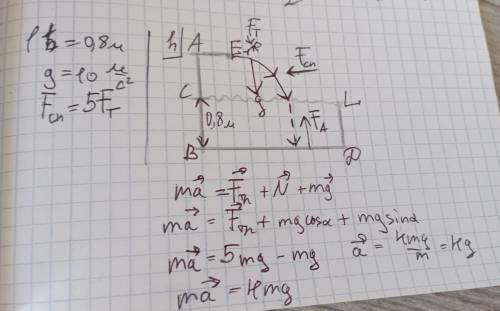 h = 0,8м
g = 10 м/с²
F̄сп = 5F̄т
h A E F̄т F̄сп
C g L
0,8м F̄A
B D
ma⃗ = F⃗тр + N⃗ + mg⃗
ma⃗ = F⃗тр + mgcosα + mgsinα
ma⃗ = 5mg - mg a⃗ = 4mg/m = 4g
ma⃗ = 4mg